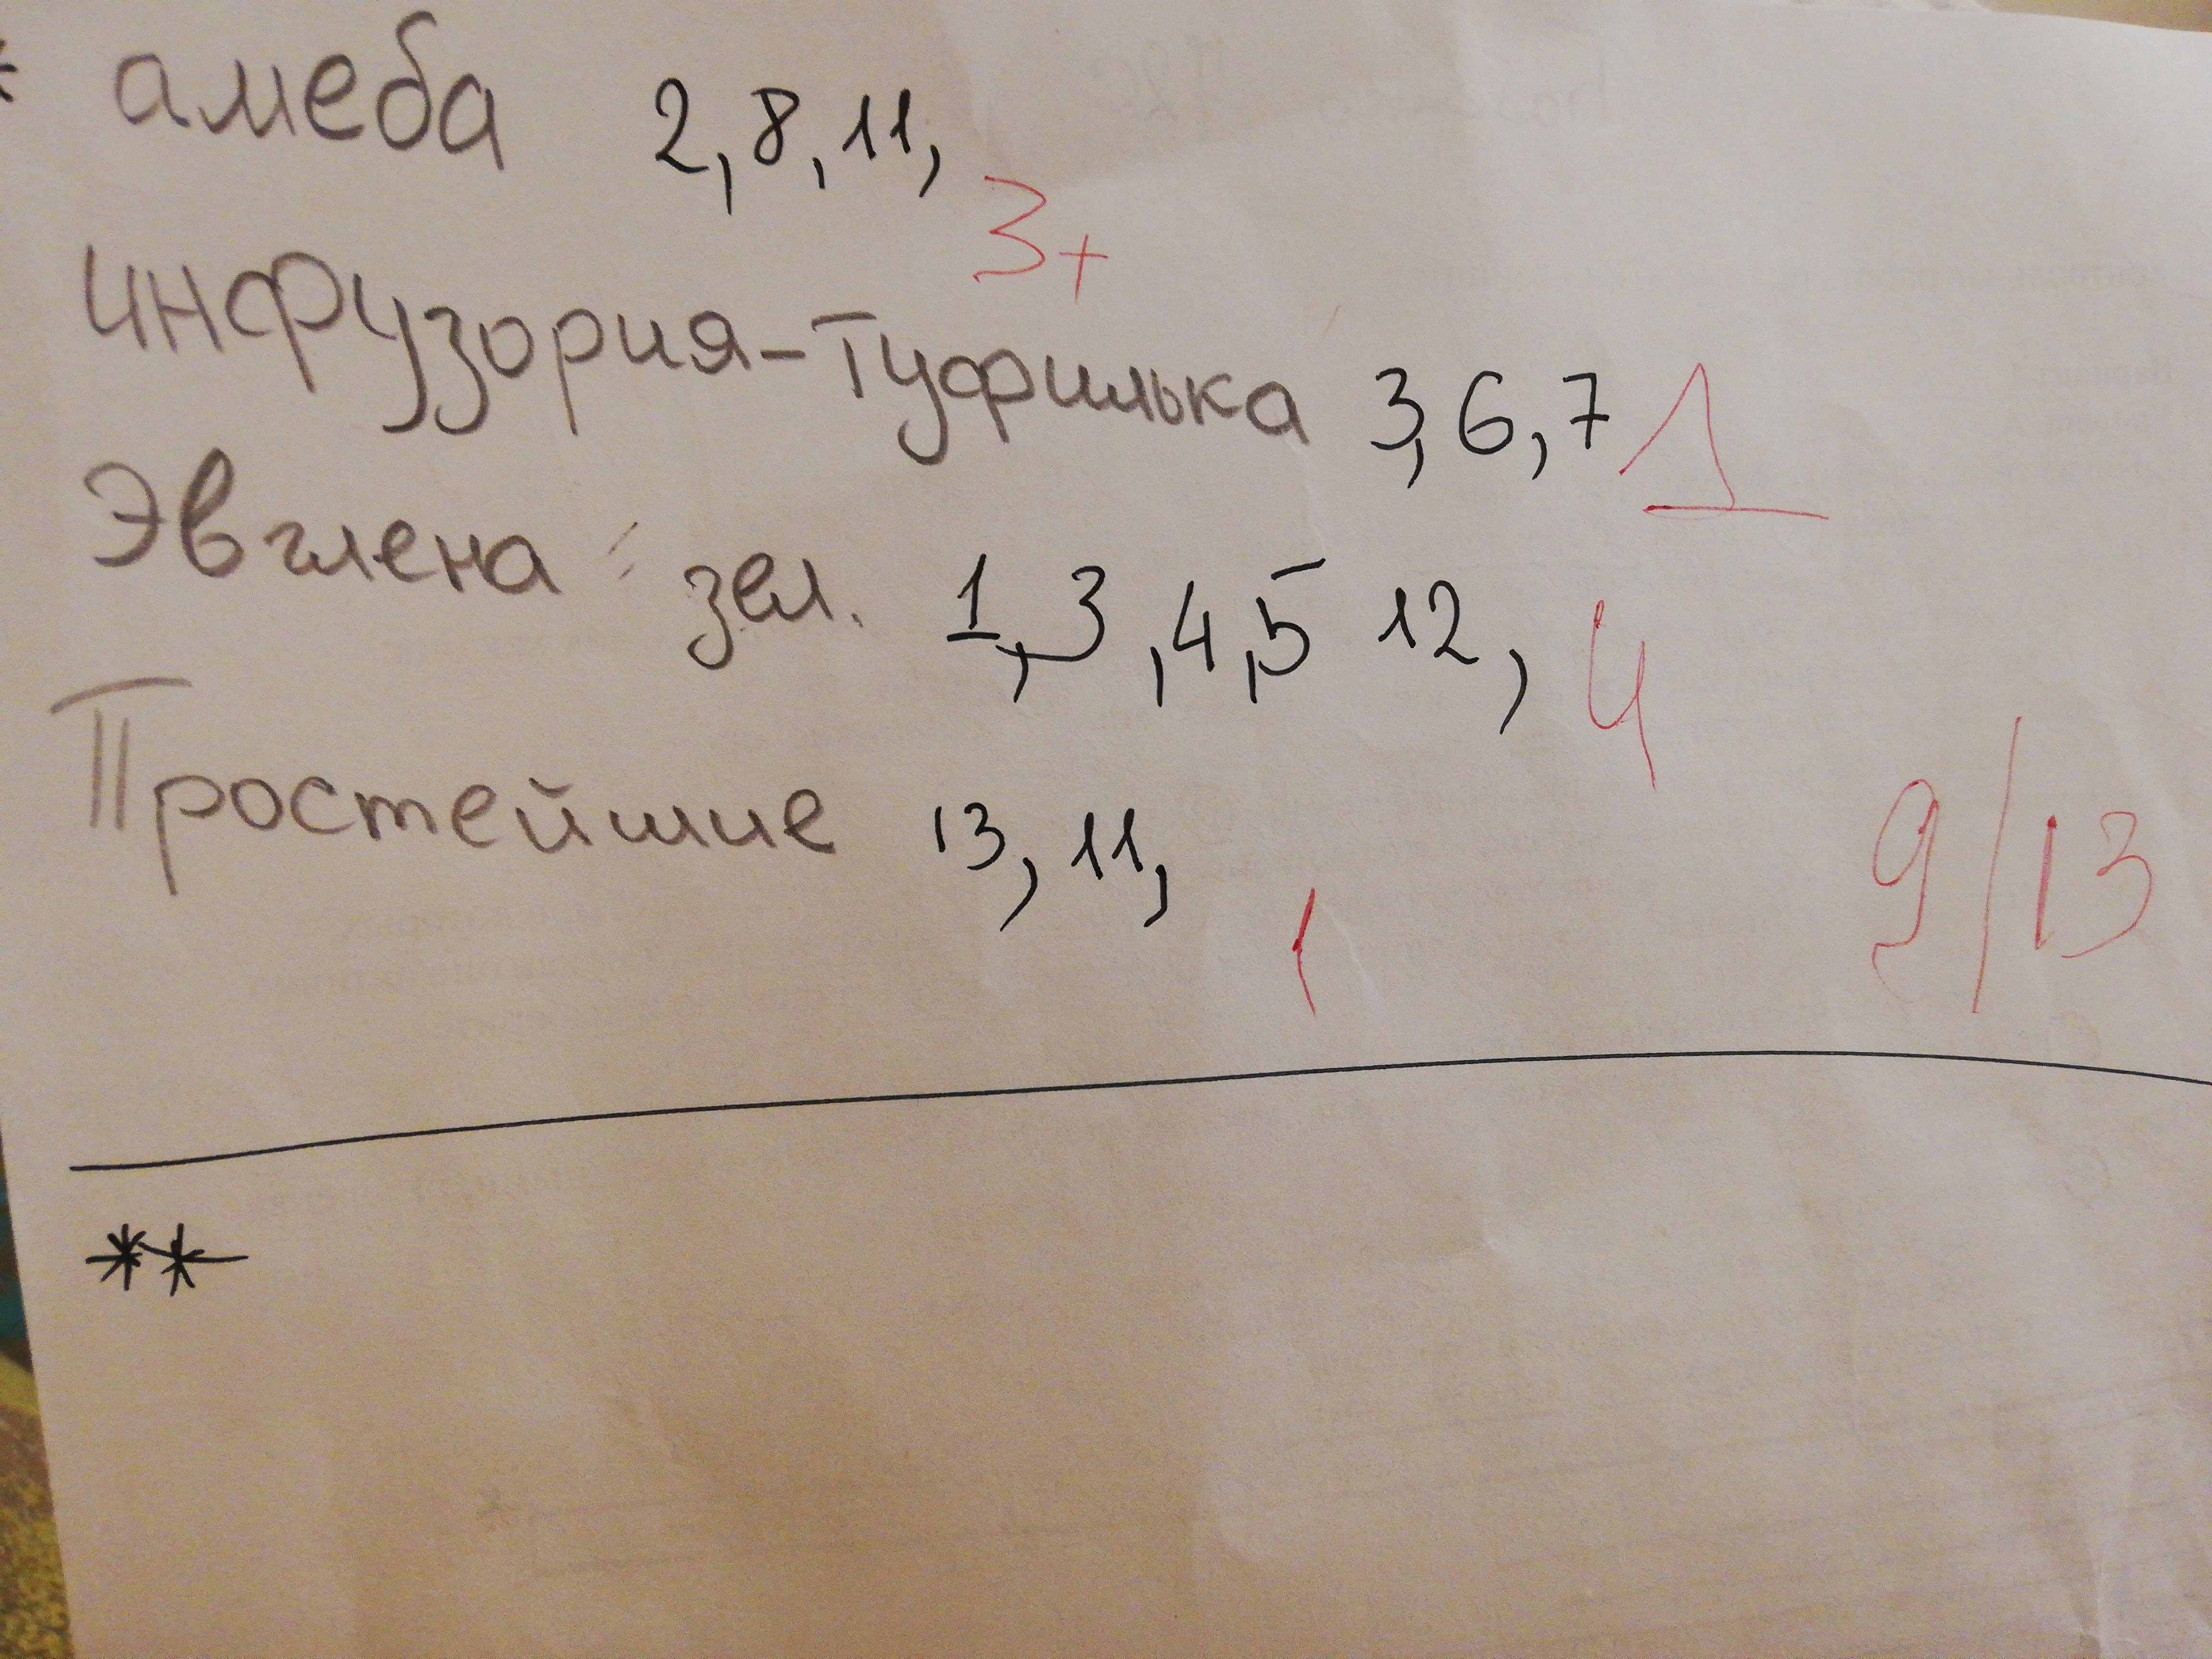 * амеба 2, 8, 11,
3+
инфузория-туфилька 3, 6, 7 1
Эвглена зел. 1, 3, 4, 5 12, 4
Простейшие 13, 11,
1
9/13
**